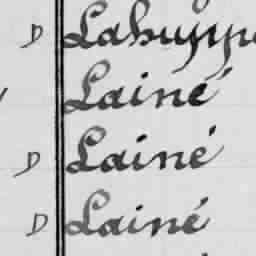 D Lahuypp
Lainé
D Lainé
D Lainé